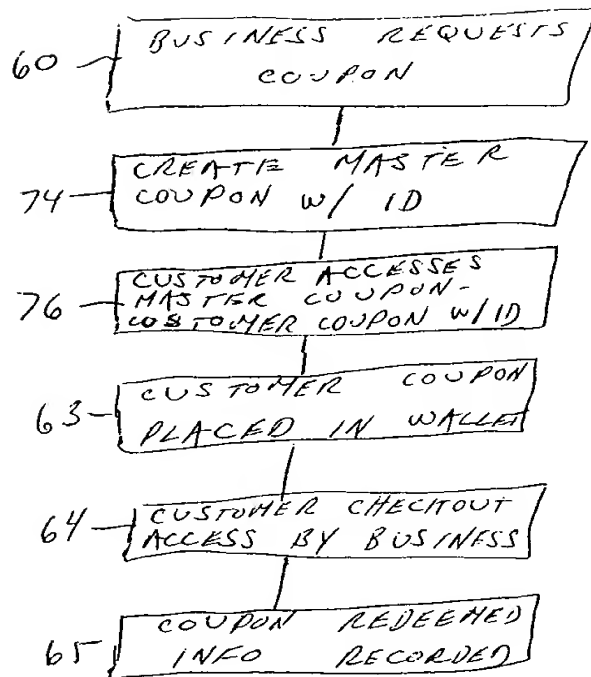 BUSINESS REQUESTS
60
COUPON
CREATE MASTER
74
COUPON W/ ID
CUSTOMER ACCESSES
76
MASTER COUPON-
CUSTOMER COUPON W/ID
CUSTOMER COUPON
63
PLACED IN WALLET
CUSTOMER CHECKOUT
64
ACCESS BY BUSINESS
COUPON REDEEMED
65
INFO RECORDED